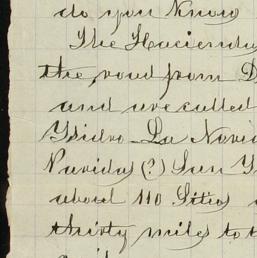 do you know
The Hacienda
the road from D
and are called
Ysidro - La Navid
Navidad (?) San Y
about 110 Sitios
thirty miles to t